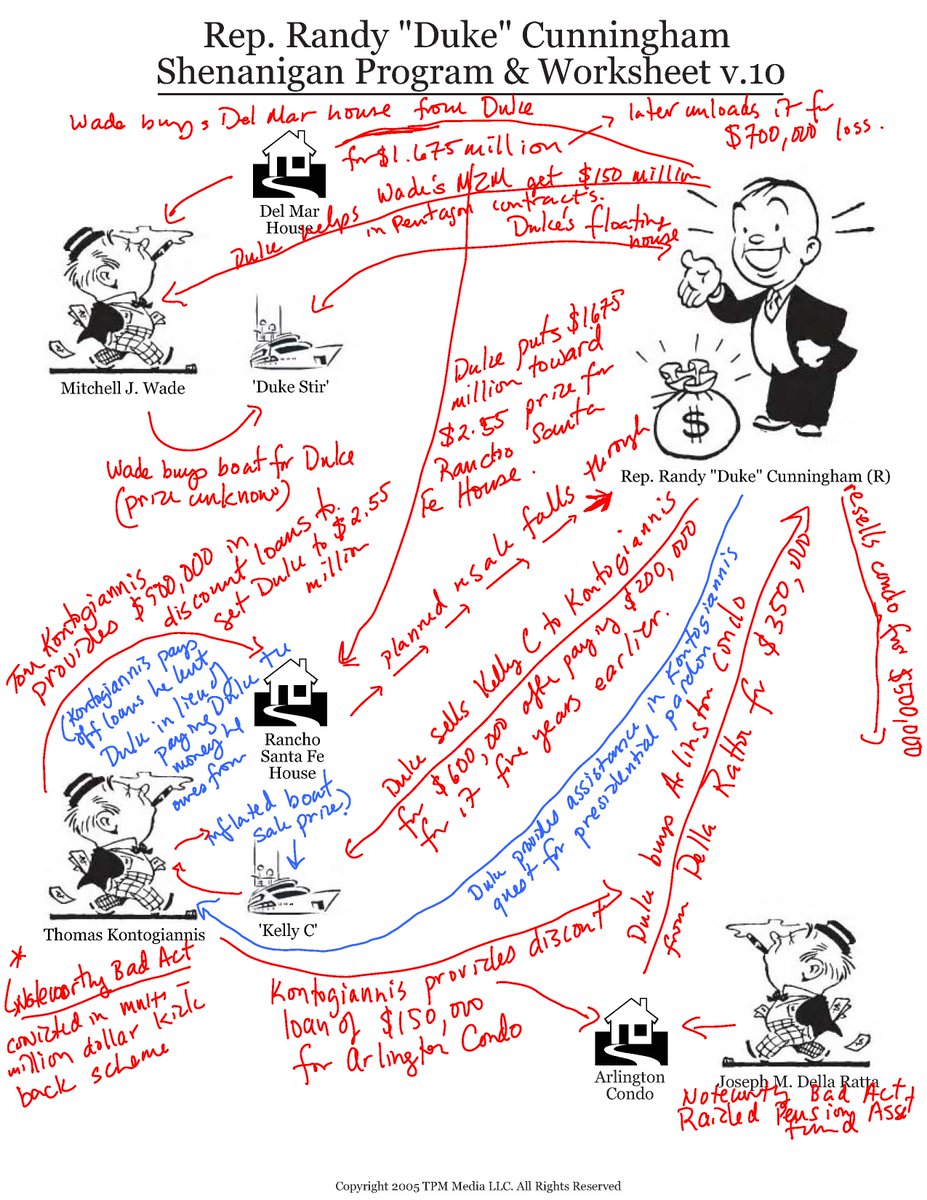 Rep. Randy "Duke" Cunningham
Shenanigan Program & Worksheet v.10
Wade buys Del Mar house from Duke
for $1.675 million
later unloads it for
$700,000 loss.
Del Mar
House
Duke helps Wade's MZM get $150 million
in Pentagon contracts.
Duke's floating
house
Mitchell J. Wade
'Duke Stir'
Wade buys boat for Duke
(prize unknown)
Duke puts $1675
million toward
$2.55 prize for
Rancho Santa
Fe House.
Rep. Randy "Duke" Cunningham (R)
resells condo for $500,000
Tom Kontogiannis
provides $500,000 in
discount loans to
get Duke to $2.55
million
planned resale falls through
(Kontogiannis pays
off loans he lent
Duke in lieu of
paying Duke the
money he
owes from
inflated boat
sale prize?)
Rancho
Santa Fe
House
Duke sells Kelly C to Kontogiannis
for $600,000 after paying $200,000
for it five years earlier.
Duke provides assistance in Kontogiannis
quest for presidential pardon
Duke buys Arlington Condo
from Della Ratta for $350,000
Thomas Kontogiannis
'Kelly C'
* Noteworthy Bad Act
convicted in multi-
million dollar kick
back scheme
Kontogiannis provides discont
loan of $150,000
for Arlington Condo
Arlington
Condo
Joseph M. Della Ratta
Noteworthy Bad Act
Raided Pension Asset
fund
Copyright 2005 TPM Media LLC. All Rights Reserved